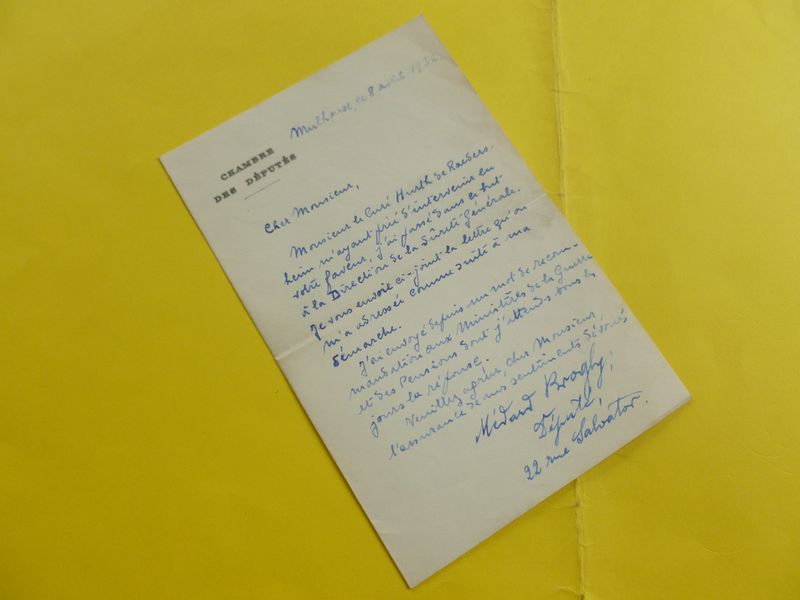 Mulhouse, ce 8 avril 1932
CHAMBRE
DES DÉPUTÉS
Cher Monsieur,
Monsieur le Curé Hurth de Raeders-
heim m'ayant prié d'intervenir en
votre faveur, j'ai passé dans ce but
à la Direction de la Sûreté Générale.
Je vous envoie ci-joint la lettre qu'on
m'a adressée comme suite à ma
démarche.
J'ai envoyé depuis un mot de recom-
mandation aux Ministères de la Guerre
et des Pensions dont j'attends tous les
jours la réponse.
Veuillez agréer, cher Monsieur,
l'assurance de mes sentiments dévoués
Médard Brogly,
Député,
22 rue Salvator.